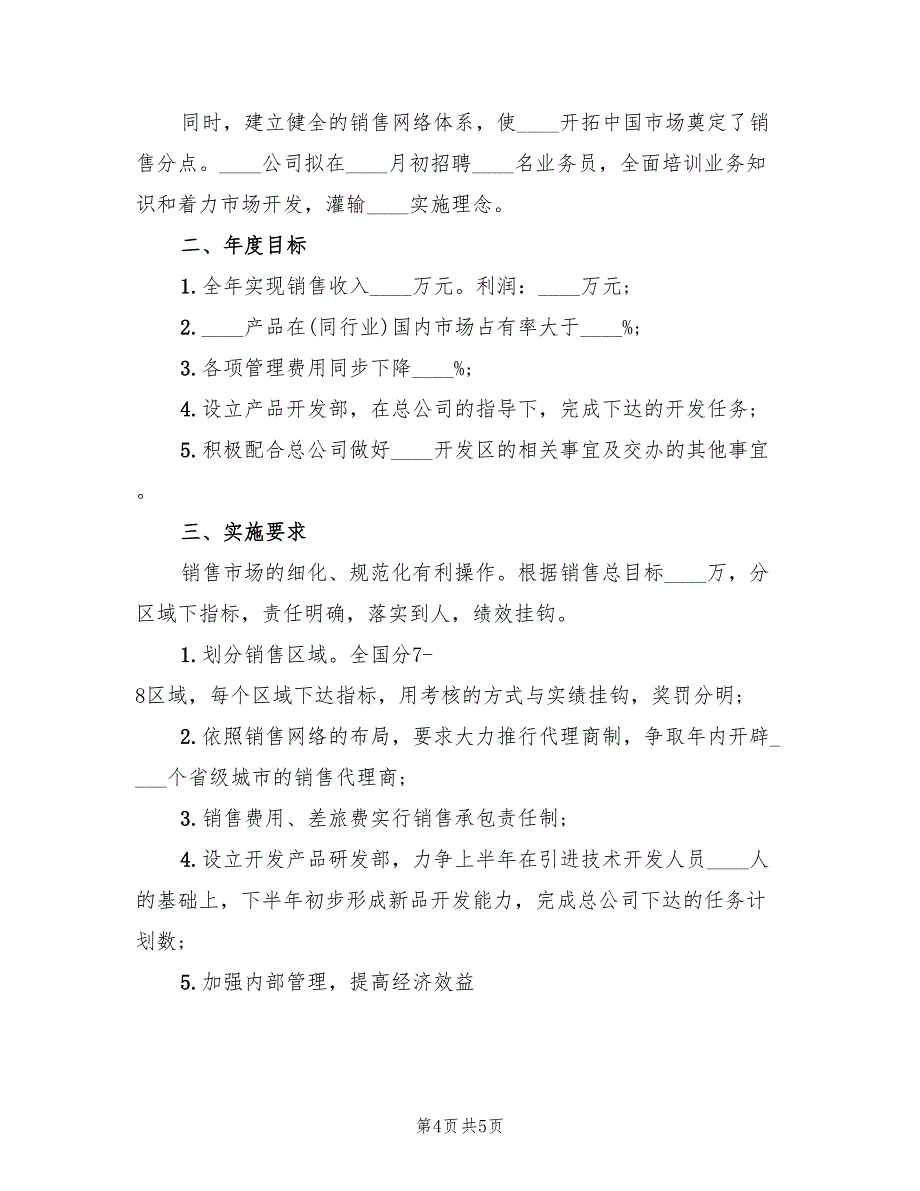 同时，建立健全的销售网络体系，使____开拓中国市场奠定了销
售分点。____公司拟在____月初招聘____名业务员，全面培训业务知
识和着力市场开发，灌输____实施理念。
二、年度目标
1.全年实现销售收入____万元。利润：____万元;
2.____产品在(同行业)国内市场占有率大于____%;
3.各项管理费用同步下降____%;
4.设立产品开发部，在总公司的指导下，完成下达的开发任务;
5.积极配合总公司做好____开发区的相关事宜及交办的其他事宜
。
三、实施要求
销售市场的细化、规范化有利操作。根据销售总目标____万，分
区域下指标，责任明确，落实到人，绩效挂钩。
1.划分销售区域。全国分7-
8区域，每个区域下达指标，用考核的方式与实绩挂钩，奖罚分明;
2.依照销售网络的布局，要求大力推行代理商制，争取年内开辟_
___个省级城市的销售代理商;
3.销售费用、差旅费实行销售承包责任制;
4.设立开发产品研发部，力争上半年在引进技术开发人员____人
的基础上，下半年初步形成新品开发能力，完成总公司下达的任务计
划数;
5.加强内部管理，提高经济效益
第4页共5页